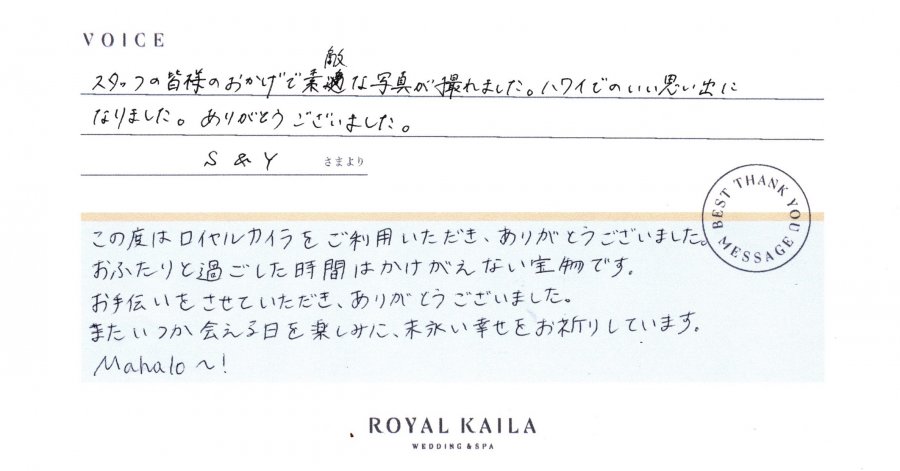 VOICE
スタッフの皆様のおかげで素敵な写真が撮れました。ハワイでのいい思い出に
なりました。ありがとうございました。
S & Y さまより
BEST THANK YOU MESSAGE
この度はロイヤルカイラをご利用いただき、ありがとうございました。
おふたりと過ごした時間はかけがえない宝物です。
お手伝いをさせていただき、ありがとうございました。
またいつか会える日を楽しみに、末永い幸せをお祈りしています。
Mahalo〜!
ROYAL KAILA
WEDDING & SPA